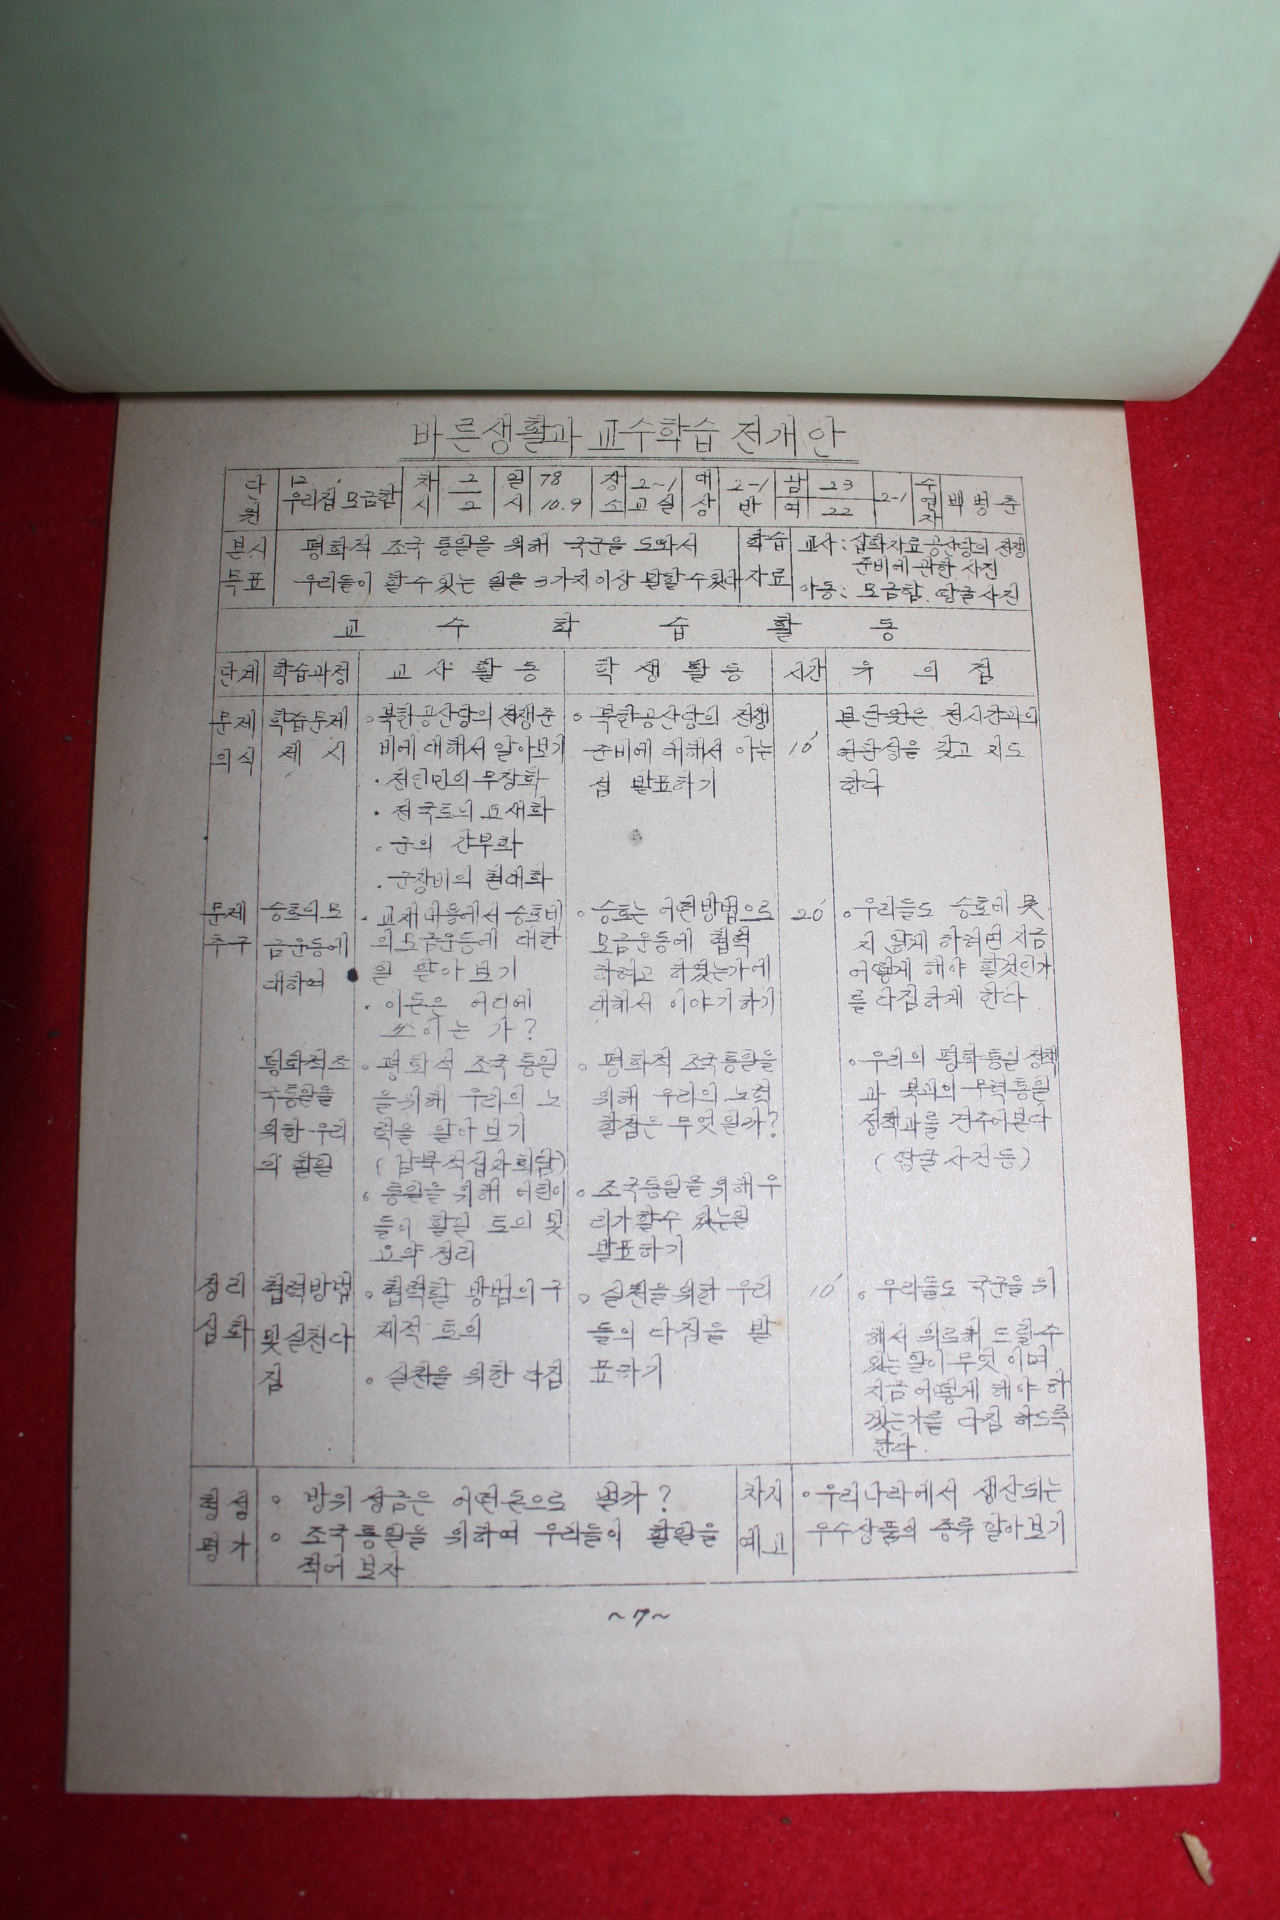 바른생활과 교수학습 전개안
단원 12. 우리집 모금함 차시 2/2 일시 78 10.9 장소 2~1 교실 대상 2-1반 남 23 여 22 2-1 수업자 백병춘
본시 목표 평화적 조국 통일을 위해 국군을 도와서
우리들이 할 수 있는 일을 3가지 이상 말할 수 있다
학습 자료 교사: 삽화자료 공산당의 전쟁
준비에 관한 사진
아동: 모금함. 땅굴 사진
교 수 학 습 활 동
단계 학습과정 교사 활동 학생 활동 시간 유의점
문제 의식
학습문제
제 시
○ 북한 공산당의 전쟁준
비에 대해서 알아보기
· 전인민의 무장화
· 전국토의 요새화
· 군의 간부화
· 군장비의 현대화
○ 북한공산당의 전쟁
준비에 대해서 아는
점 발표하기
10′
본 단원은 전시간과의
연관성을 갖고 지도
한다
문제 추구
승호의 모
금운동에
대하여
· 교재내용에서 승호네
의 모금운동에 대한
일 알아보기
· 이돈은 어디에
쓰이는 가?
○ 승호는 어떤방법으로
모금운동에 협력
하려고 하였는가에
대해서 이야기하기
20′
○ 우리들도 승호네 못
지 않게 하려면 지금
어떻게 해야 할것인가
를 다짐하게 한다
평화적조
국통일을
위한 우리
의 할일
○ 평화적 조국 통일
을 위해 우리의 노
력을 알아보기
(남북적십자회담)
○ 통일을 위해 어린이
들이 할일 토의 및
요약 정리
○ 평화적 조국통일을
위해 우리의 노력
할점은 무엇일까?
○ 조국통일을 위해 우
리가 할수 있는일
발표하기
○ 우리의 평화통일 정책
과 북괴의 무력통일
정책과를 견주어본다
(땅굴 사건 등)
정리 심화
협력방법
및 실천다
짐
○ 협력할 방법의 구
체적 토의
○ 실천을 위한 다짐
○ 실천을 위한 우리
들의 다짐을 발
표하기
10′
○ 우리들도 국군을 위
해서 위로해 드릴수
있는 일이 무엇 이며
지금 어떻게 해야 하
겠는가를 다짐 하도록
한다.
형성 평가
○ 방위 성금은 어떤돈으로 낼까?
○ 조국통일을 위하여 우리들의 할일을
적어 보자
차시 예고
○ 우리나라에서 생산되는
우수상품의 종류 알아보기
~7~